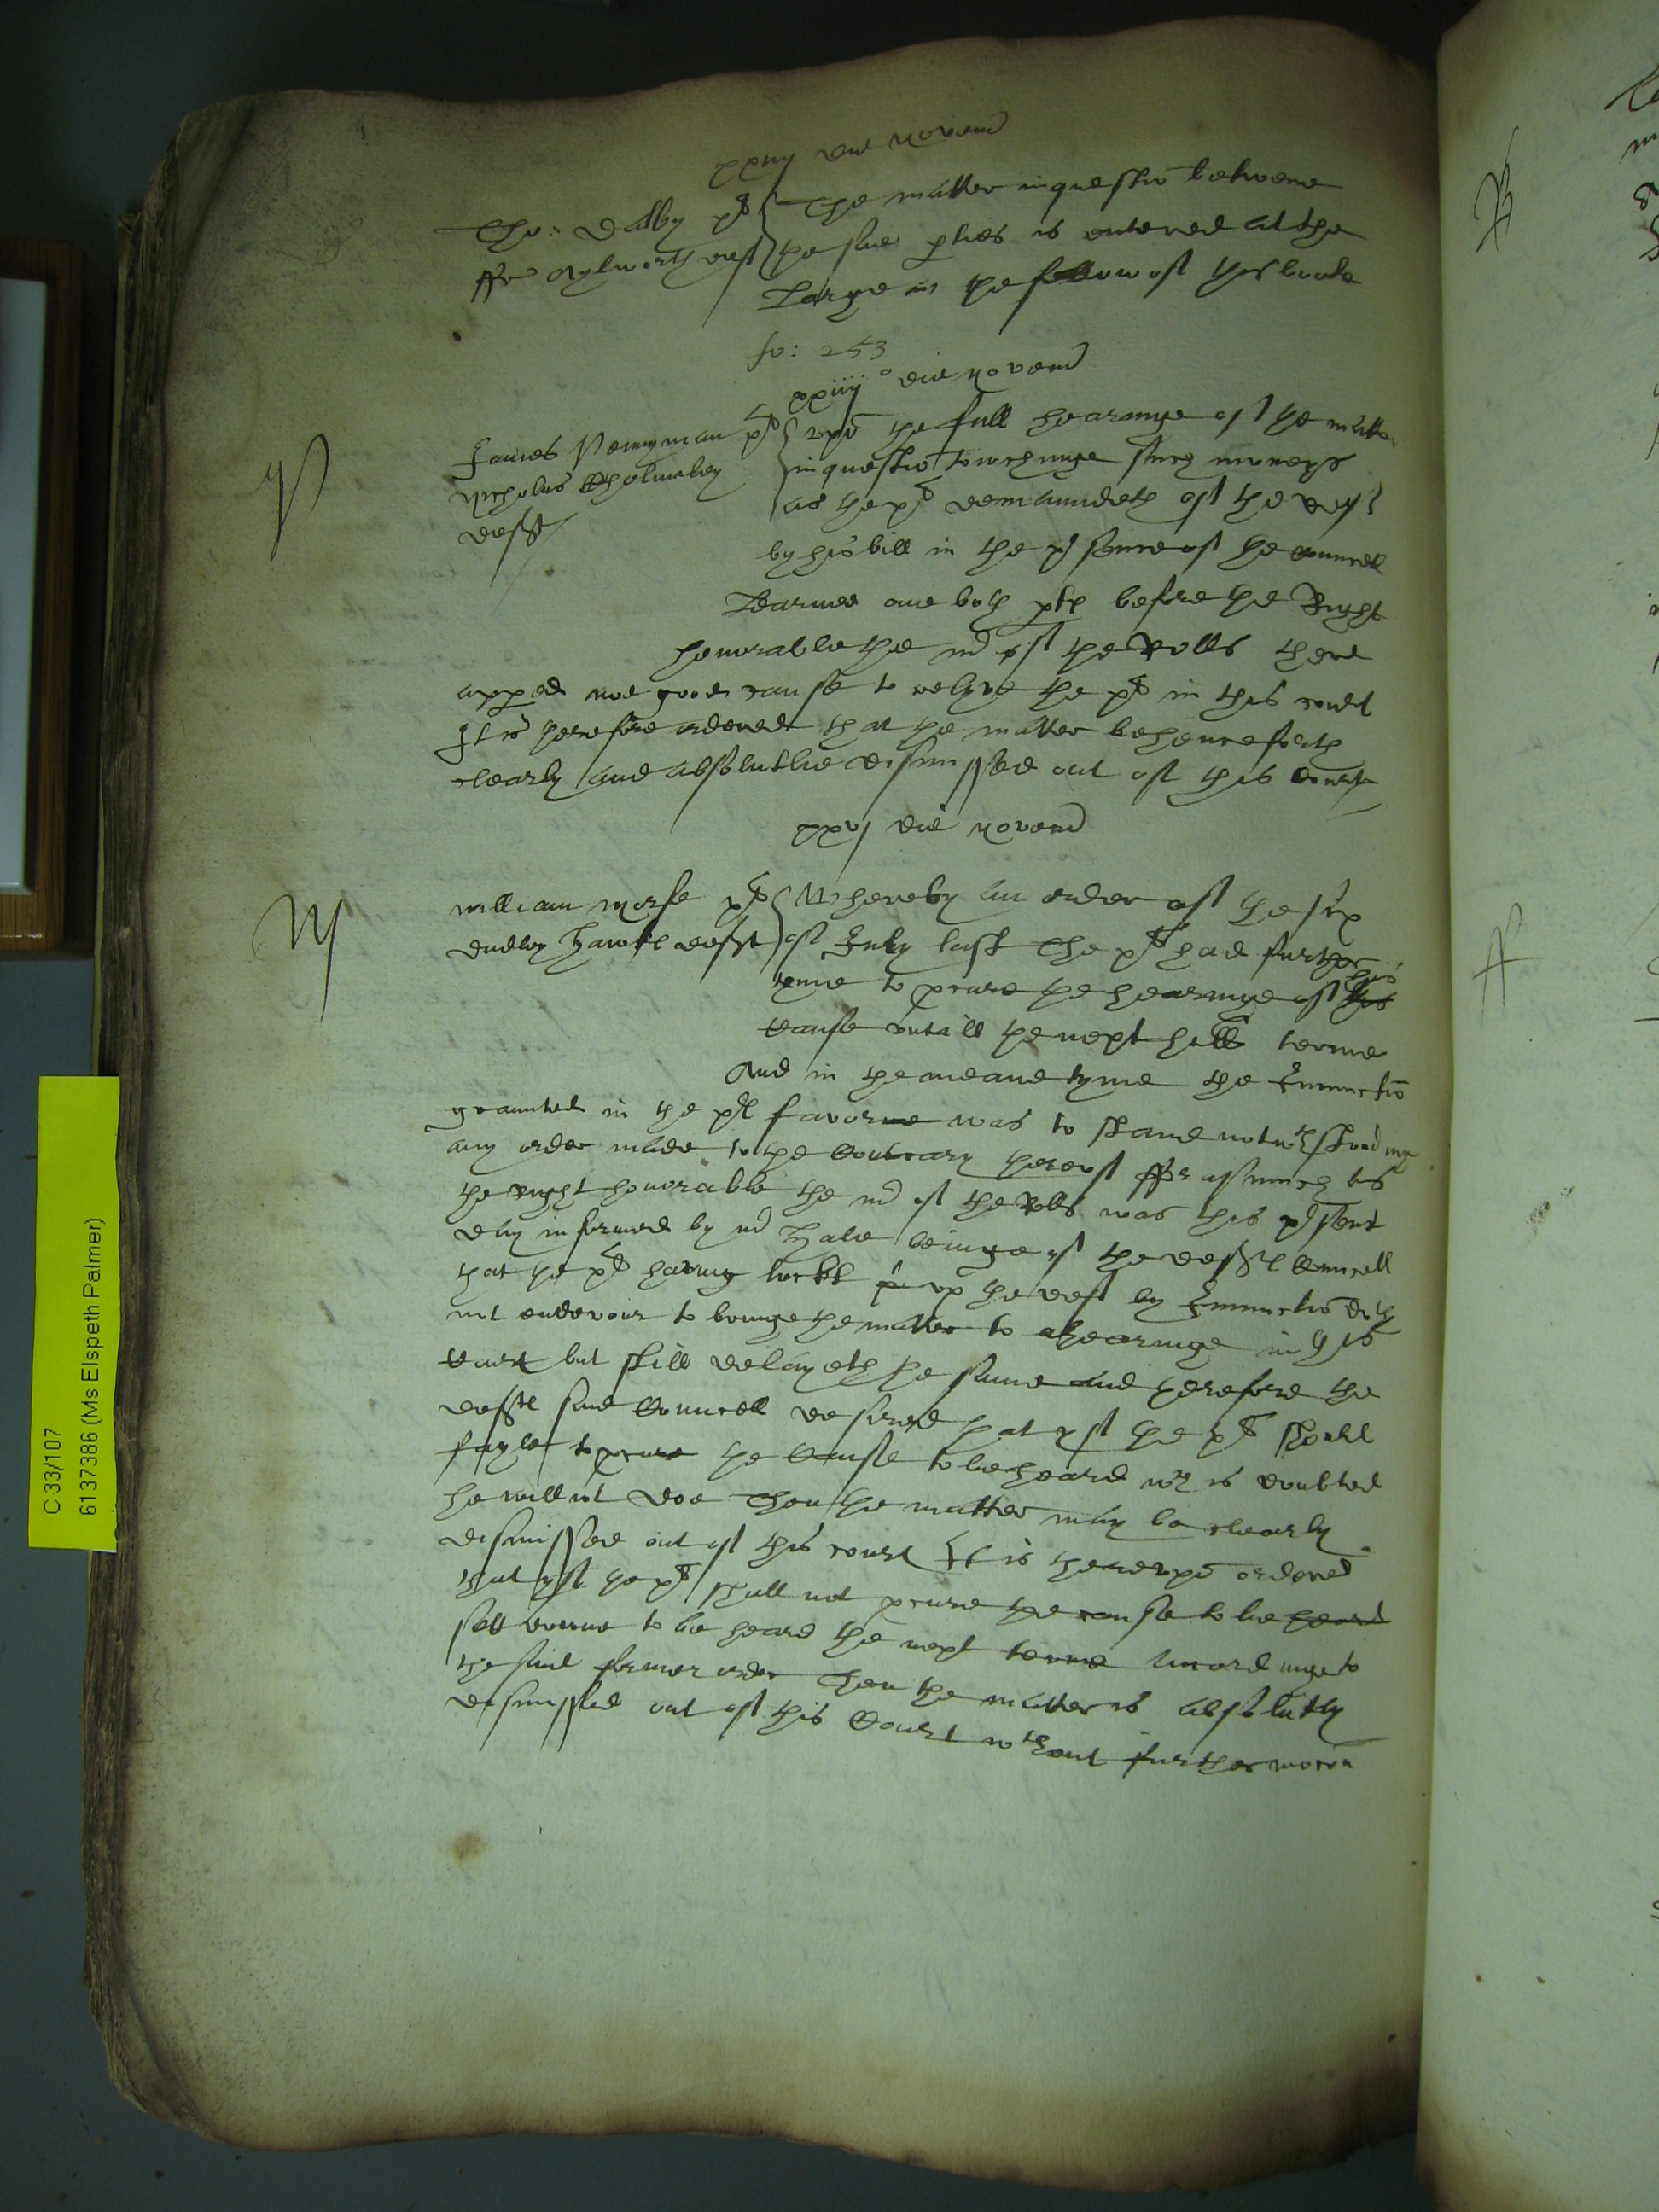 xxiiij die Novem
Tho: Dalby pl The matter in questio betwene
ffr Aylworth def the said pties is entered at the
Large in the fellow of this booke
fo: 253
xxiiij o die Novem
James Pennyman pl upo the full hearinge of the matter
Nicholas Cholmeley in questio touchinge such moneys
deft as the pl demaundeth of the def
by his bill in the psence of the councell
Learned one both pts before the Right
honorable the mr of the Rolls there
appered noe good cause to relyve the pl in this court
It is therefore ordered that the matter be henceforth
clearly and absolutlie dismissed out of this Courte
xxvj die Novem
P
M
william morse pl Whereby an order of the six
dudley deft of July last The pl had further
tyme to pcure the hearinge of this his
Cause untill the next hill terme
And in the meane tyme the Iniunctio
graunted in the pl favor was to stand notwthstandinge
any order made to the Contrary thereof ffor asmuch as
the right honorable the mr of the Rolls was this psent
day informed by mr Hale beinge of the defts Councell
that the pl having lockt up the def by Iniunctio doth
not endevour to bringe the matter to a hearinge in this
Court but still delayeth the same and therefore the
defts said Councell desired that yf the pl should
fayle to pcure the Cause to be heard wch is doubted
he will not doe Then the matter may be clearly
dismissed out of this court It is thereupo ordered
that yf the pl shall not pcure the cause to be heard
sett downe to be heard the next terme accordinge to
the said former order Then the matter is absolutly
dismissed out of this Court wthout further mocon
C 33/107
6137386 (Ms Elspeth Palmer)